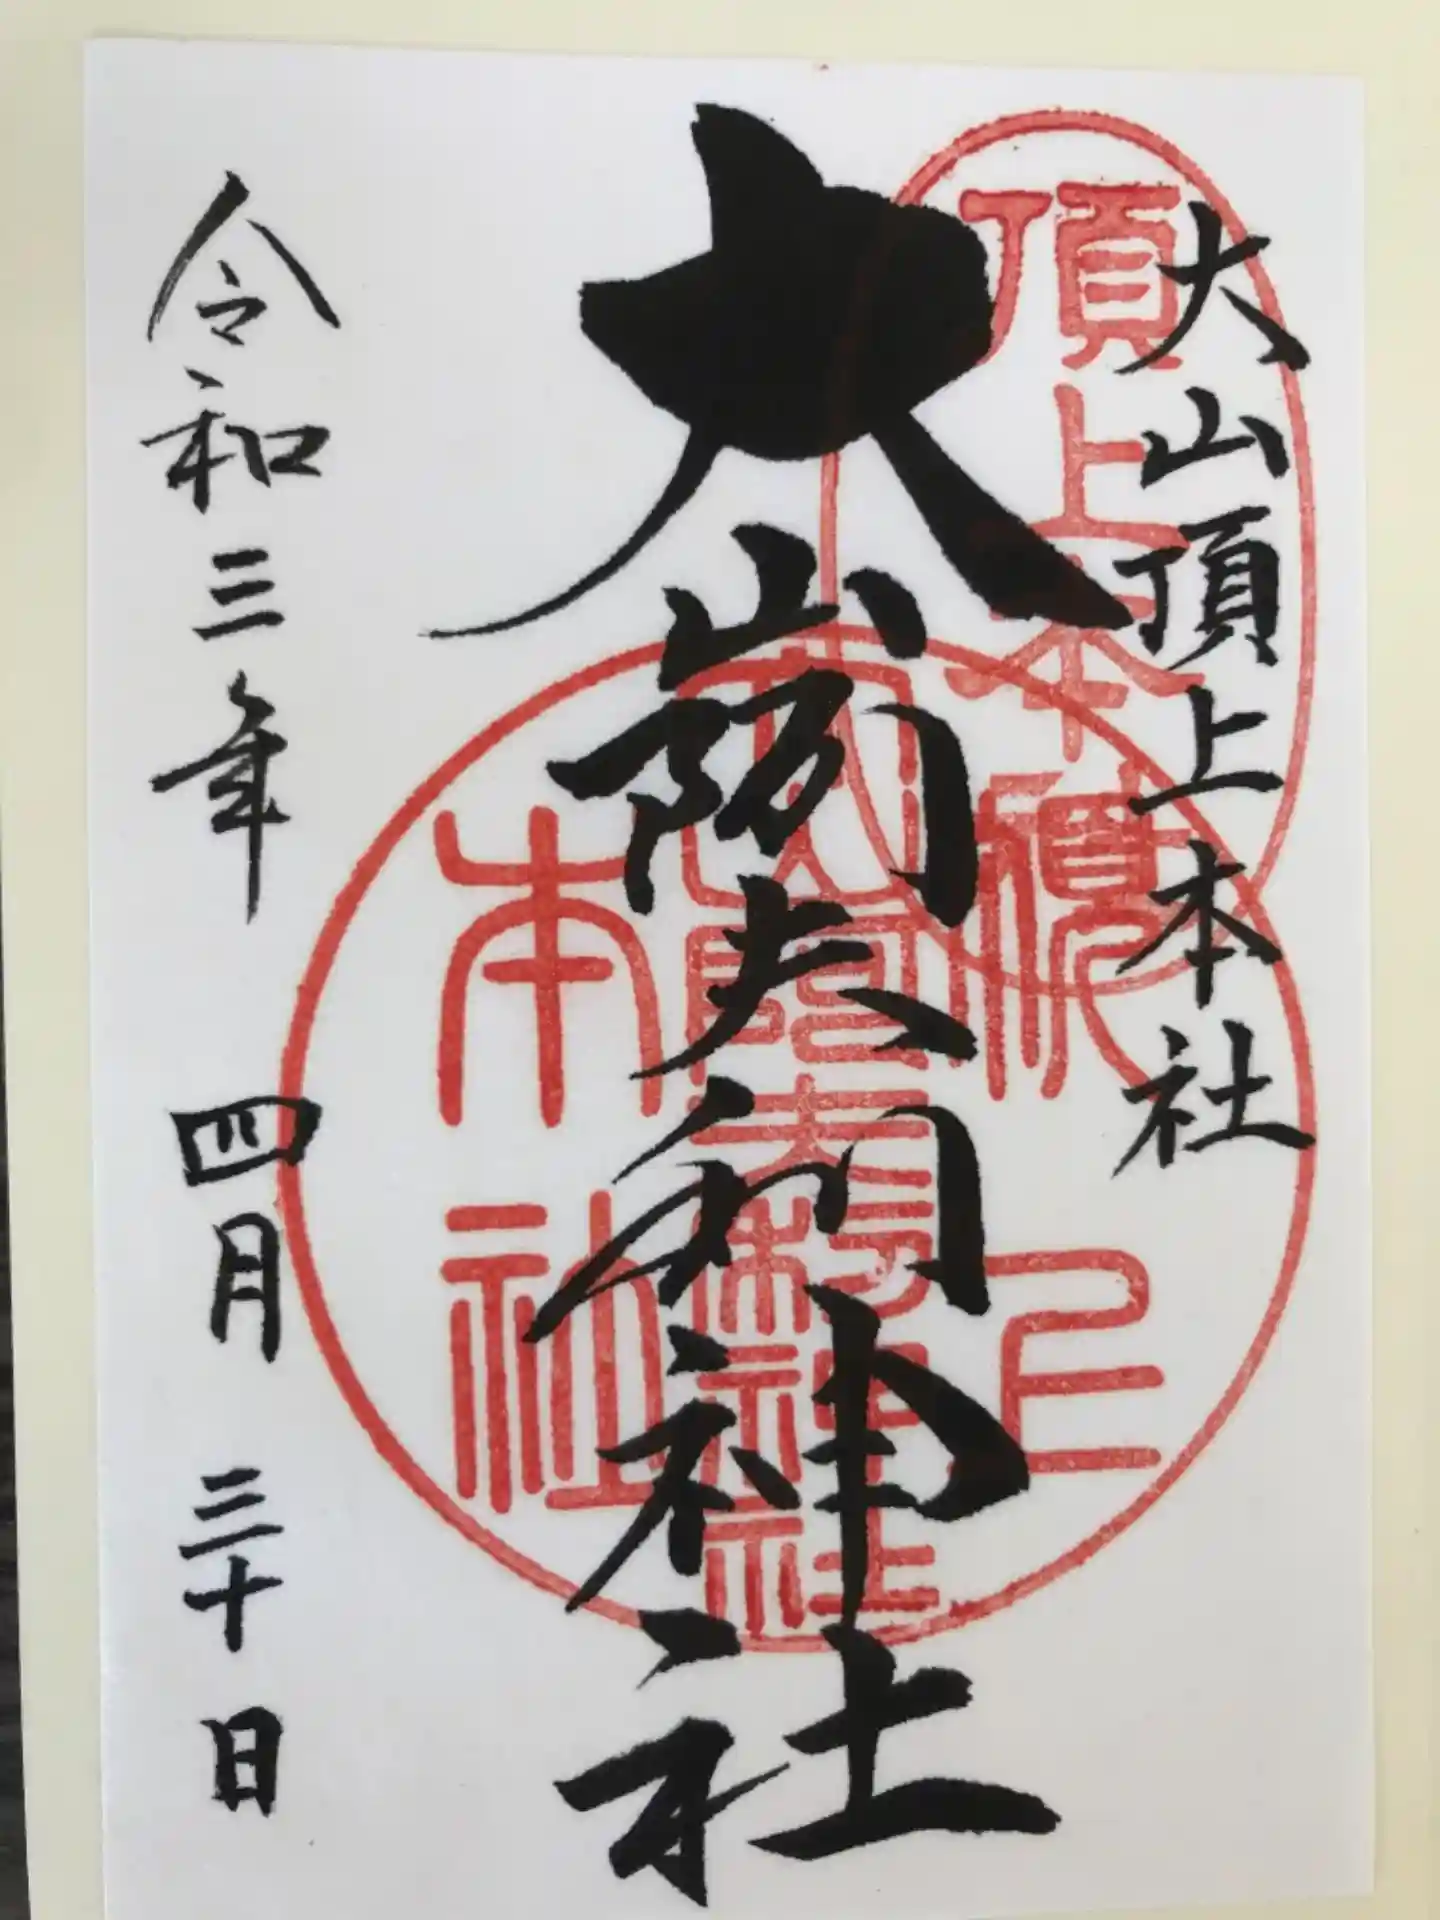 大山頂上本社
大山阿夫利神社
令和三年 四月 三十日
頂上本社
大山阿夫利神社
本社